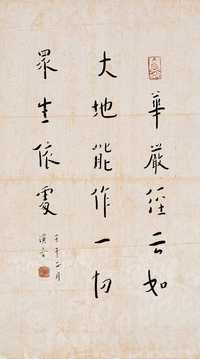 華嚴經云如
大地能作一切
眾生依處
演音